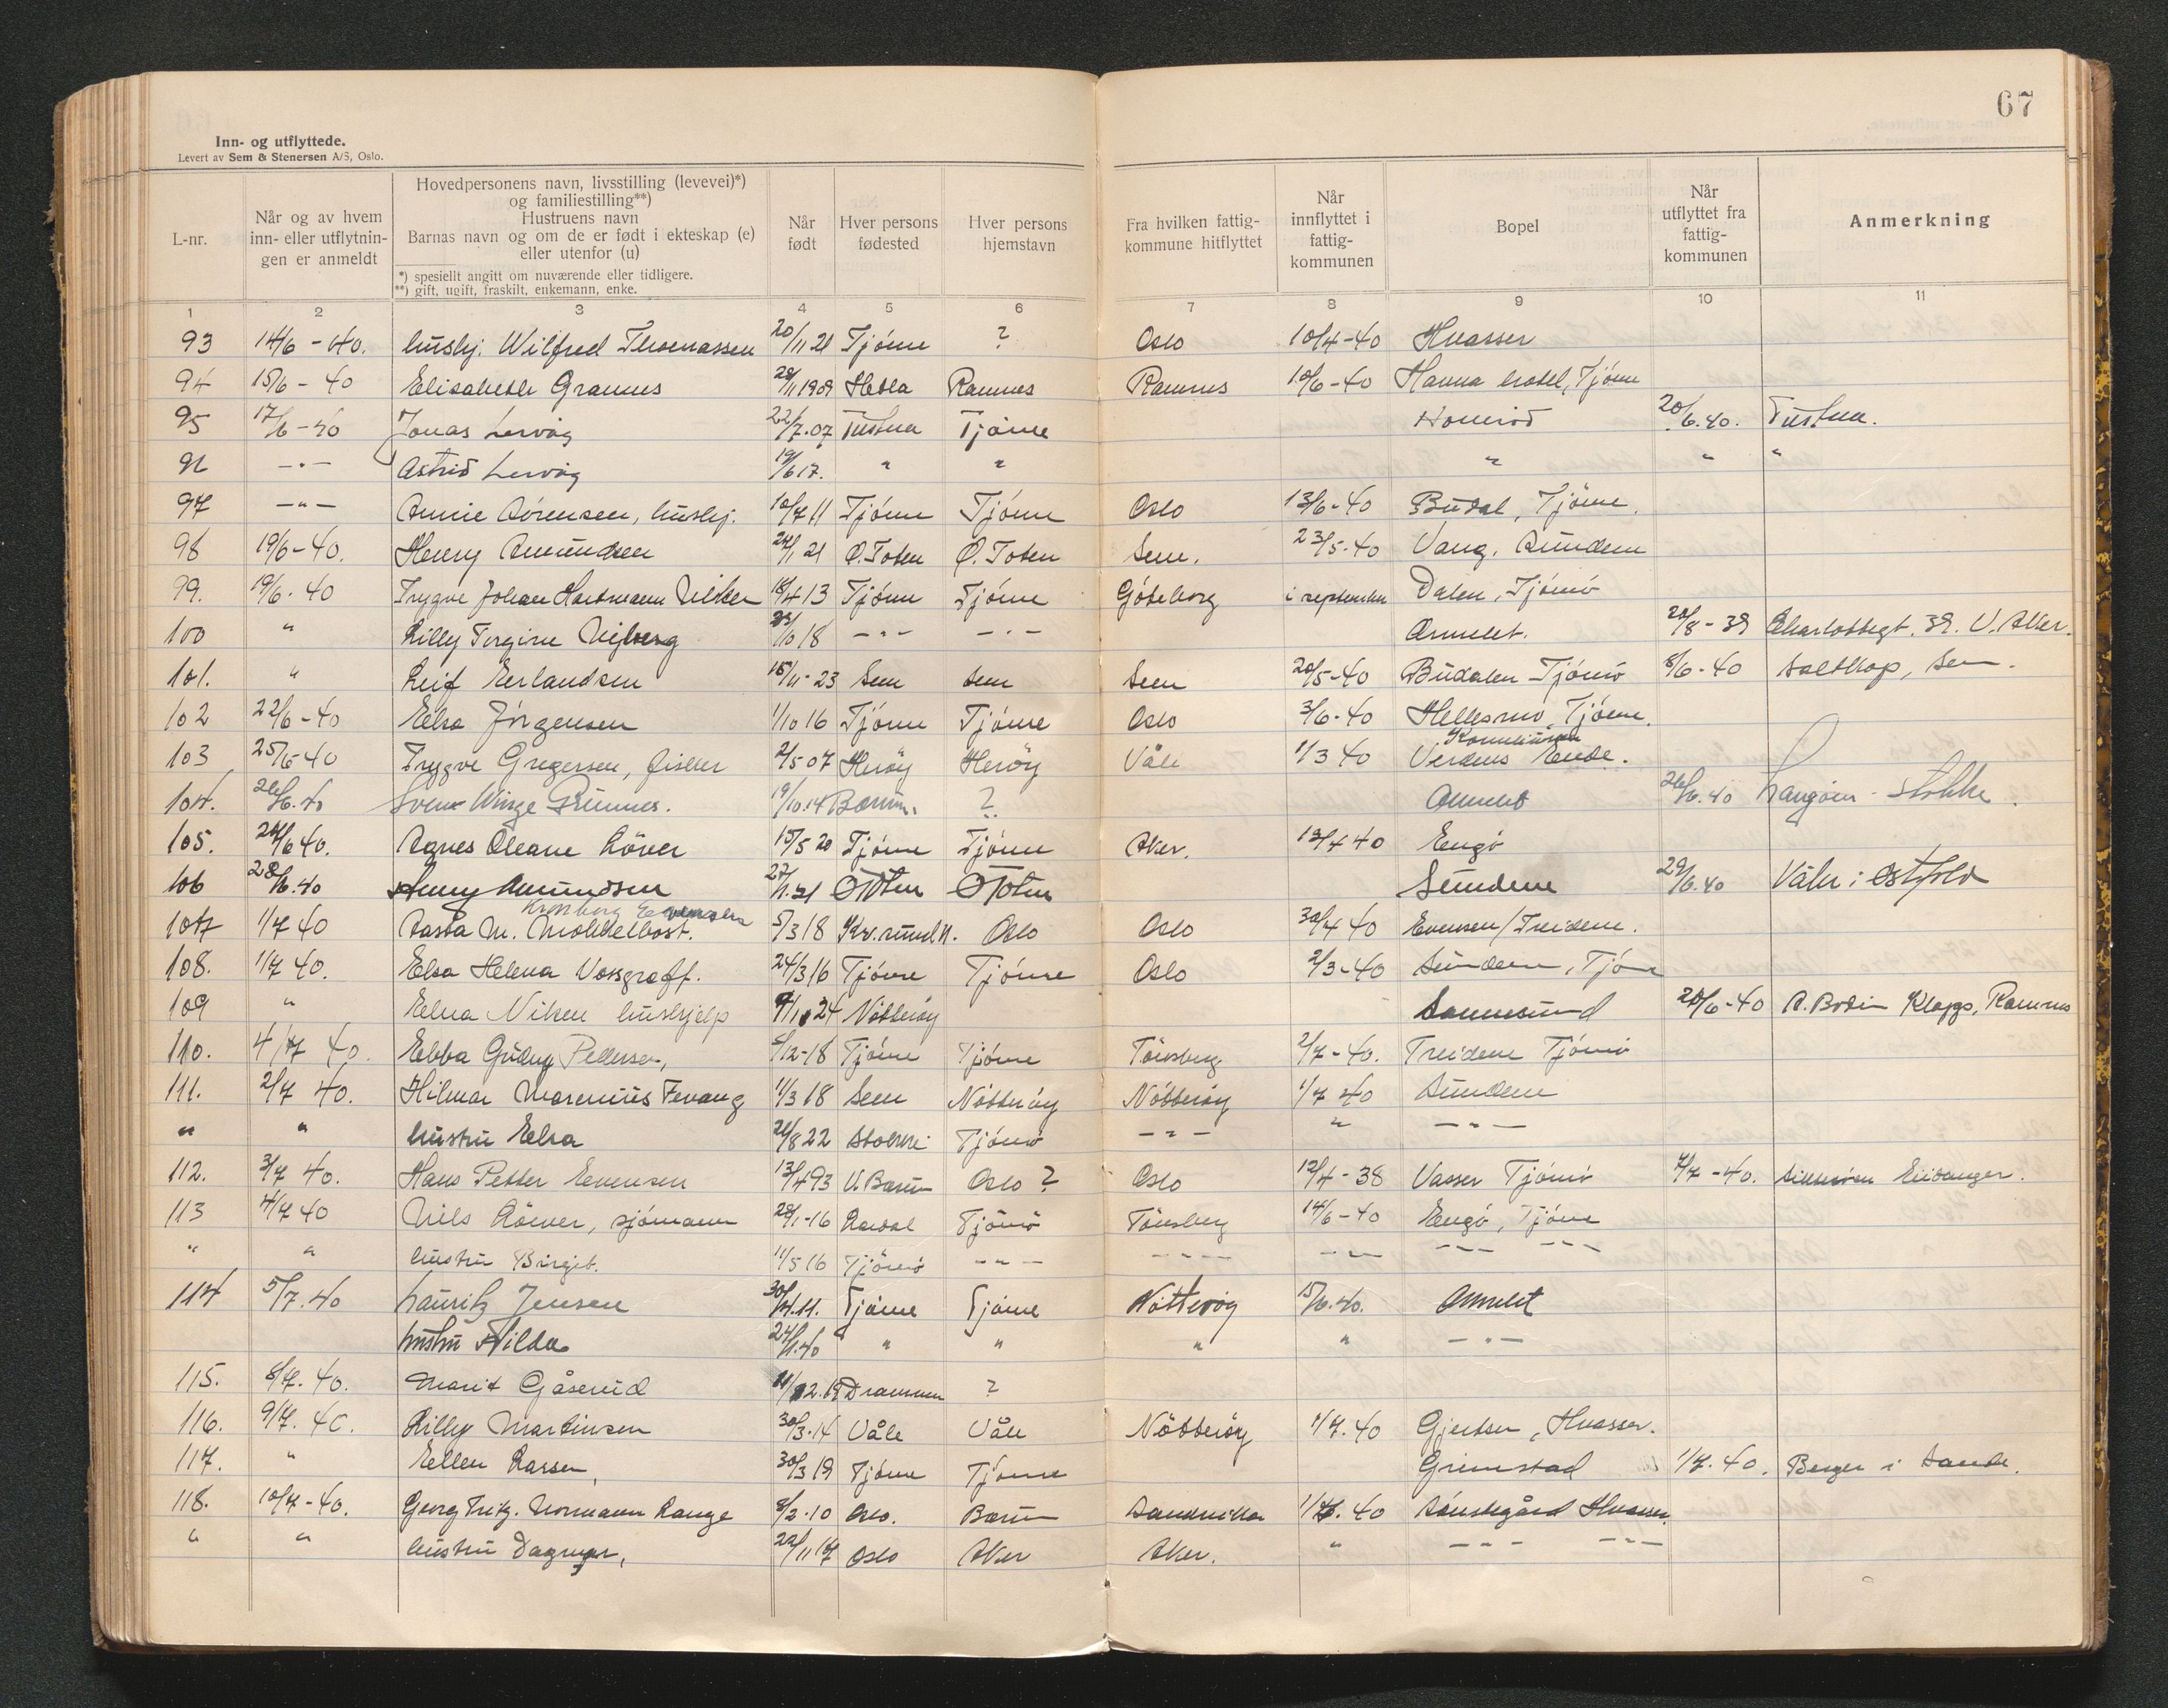 67
Inn- og utflyttede.
Levert av Sem & Stenersen A/S, Oslo.
L-nr.
Når og av hvem inn- eller utflytnin-gen er anmeldt
Hovedpersonens navn, livsstilling (levevei)*) og familiestilling**)
Hustruens navn
Barnas navn og om de er født i ekteskap (e) eller utenfor (u)
*) spesiellt angitt om nuværende eller tidligere.
**) gift, ugift, fraskilt, enkemann, enke.
Når født
Hver persons fødested
Hver persons hjemstavn
Fra hvilken fattig-kommune hitflyttet
Når innflyttet i fattig-kommunen
Bopel
Når utflyttet fra fattig-kommunen
Anmerkning
1 2 3 4 5 6 7 8 9 10 11
93 14/6-40. hushj. Wilfred Thomassen 20/11 21 Tjøme ? Oslo 10/4-40 Hvasser
94 15/6-40 Elisabeth Grannes 1909 Ramnes Ramnes 10/6-40 Hanna hotel, Tjøme
95 17/6-40 Jonas Lervåg 22/7-07 Tustna Tjøme 20/6.40. Tustna.
96 -"- Astrid Lervåg 19/6 17. " " " " "
97 -"- Annie Sørensen, hushj. 10/7 11 Tjøme Tjøme Oslo 13/6-40 Budal, Tjöme.
98 19/6-40. Henry Amundsen 24/1 21 Ø.Toten Ø.Toten Sem. 23/5-40 Vang, Sundene
99. 19/6-40 Trygve Johan Hartmann Nilsen 18/4 13 Tjøme Tjøme Göteborg i september Dalen, Tjømø
100 " Lilly Torgine 10 18 -"- -"- Ormelet. 20/8-39 Charlottegt. 39. V. Aker.
101. " Leif Erlandsen 15/11-23 Sem Sem Sem 20/5-40 Budalen Tjømø 8/6-40 Saltkop, Sem.
102 22/6-40 Elsa Jørgensen 1/10 16 Tjøme Tjøme Oslo 3/6-40 Hellesmo, Tjøme.
103 25/6-40 Trygve Gregersen, fisker 2/5 07 Herøy Herøy Våle 1/3 40 Verdens Ende.
104. 26/6.40 Svenn Winge Grünnes. 19/10.14 Bærum. ? Ormelet 26/6.40 Langøen - Stokke.
105. 24/6 40. Agnes Oleane Röver 15/5 20 Tjøme Tjøme Aker. 13/4 40 Engø
106 28/6.40 Henny Amundsen 27/1.21 ØToten ØToten Sundene 29/6.40 Våler i Østfold
107 1/7 40 Aasta M. Mokkelbost. 5/3 18 Kr.sund N. Oslo Oslo 30/4 40 Evensen/Treidene.
108. 1/7 40. Elsa Helena Vossgraff. 24/3 16 Tjøme Tjøme Oslo 2/3-40 Sundene, Tjøm
109 " Elna Nilsen hushjelp 24 Nøtterøy Sonnesund 20/6-40 A. Bodin Klopp, Ramnes
110. 4/7 40. Ebba Gudny Pettersen, 5/12-18 Tjøme Tjøme Tönsberg 2/7-40. Treidene Tjømø
111. 2/7 40. Hilmar Marenius Fevang 11/3 18 Sem Nøtterøy Nøtterøy 1/7 40 Sundene
" " hustru Elsa 21/8 22 Stokke Tjømø -"- " -"-
112. 3/7 40. Hans Petter Evensen 13/4 93 V. Bærum Oslo ? Oslo 12/4-38 Vasser Tjømø 7/7-40. Eidanger.
113 4/7 40 Nils Röwer, sjömann 28/1-16 Tjömö Tönsberg 14/6-40 Engø, Tjöme
" " hustru Birgit. 11/5 16 Tjömö -"- -"- -"- -"- -"-
114 5/7.40 Lauritz Jensen 30/11.11. Tjøme Tjøme Nøtterøy 15/6.40. Ormelet
hustru Hilda 24/11.40 " " " " -"-
115. 8/7.40. Marit Gåserud Drammen ?
116. 9/7.40. Lilly Martinsen 30/3.14 Våle Våle Nøtterøy 1/7.40 Gjertsen, Hvasser.
117. " Ellen Larsen, 30/3 19 Tjøme Tjøme Grimestad 1/7.40. Berger i Sande.
118. 10/7-40. Georg Fritz. Normann Lange 8/2-10 Oslo. Bærum Sandvika 1/7.40 Sønstegård Hvasser.
" " hustru Dagmar, 22/11 17 Oslo Aker Aker. " -"- -"-